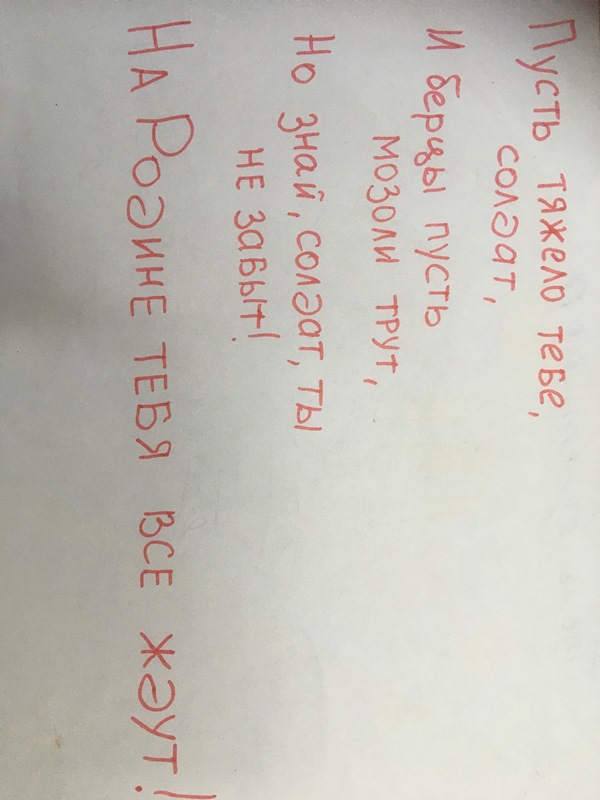 Пусть тяжело тебе,
солдат,
И берцы пусть
мозоли трут,
Но знай, солдат, ты
не забыт!
На Родине тебя все ждут!